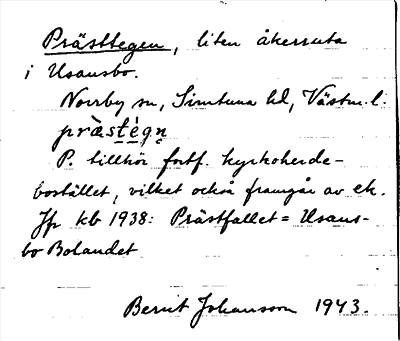 Prästtegen, liten åkerruta
i Usansbo.
Norrby sn, Simtuna hd, Västm. l.
præ̀stég̣n̥
P. tillhör fortf. kyrkoherde-
bostället, vilket också framgår av ek.
Jfr kb 1938: Prästfallet = Usans-
bo Bolandet
Bernt Johansson 1943.